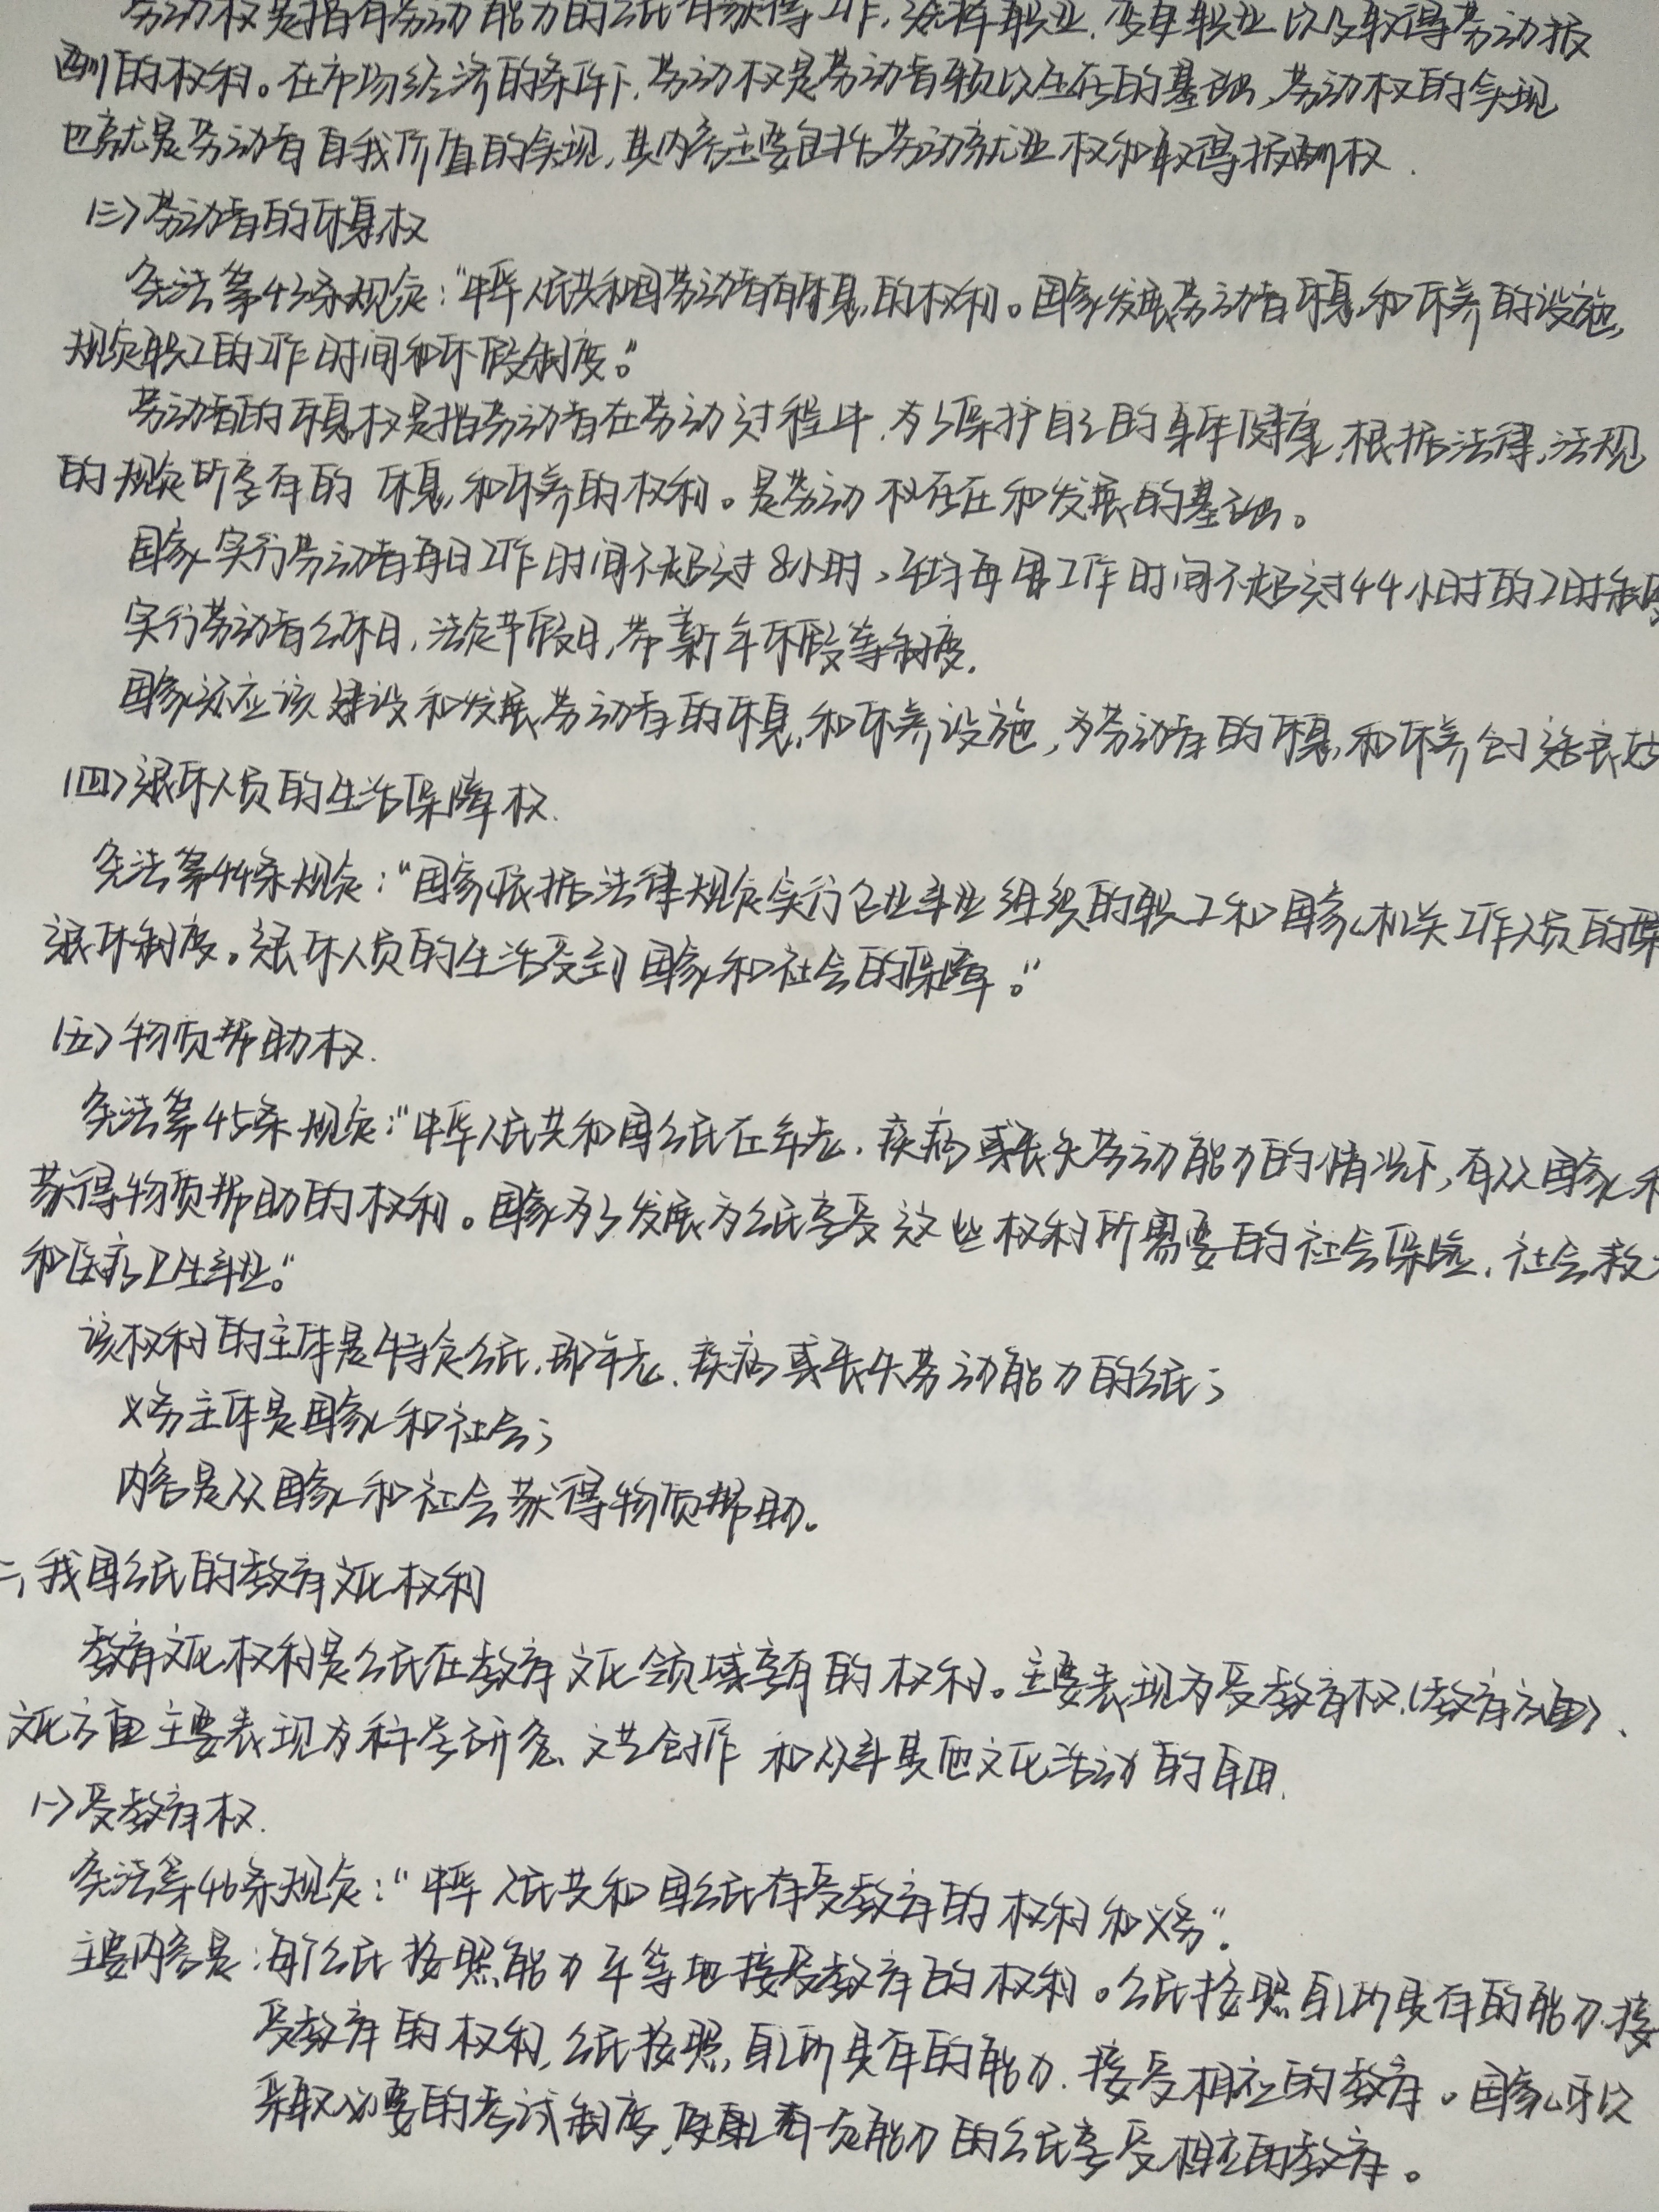 劳动权是指有劳动能力的公民有获得工作、选择职业、变更职业以及取得劳动报
酬的权利。在市场经济的条件下,劳动权是劳动者赖以生存的基础,劳动权的实现
也就是劳动者自我价值的实现,其内容主要包括劳动就业权和取得报酬权.
(三)劳动者的休息权
宪法第43条规定:“中华人民共和国劳动者有休息的权利。国家发展劳动者休息和休养的设施,
规定职工的工作时间和休假制度。”
劳动者的休息权是指劳动者在劳动过程中,为了保护自己的身体健康,根据法律、法规
的规定所享有的休息和休养的权利。是劳动权存在和发展的基础。
国家实行劳动者每日工作时间不超过8小时、平均每周工作时间不超过44小时的工时制度
实行劳动者公休日,法定节假日,带薪年休假等制度.
国家还应该建设和发展劳动者的休息和休养设施,为劳动者的休息和休养创造良好
(四)退休人员的生活保障权.
宪法第44条规定:“国家依据法律规定实行企业事业组织的职工和国家机关工作人员的
退休制度。退休人员的生活受到国家和社会的保障。”
(五)物质帮助权.
宪法第45条规定:“中华人民共和国公民在年老、疾病或丧失劳动能力的情况下,有从国家和
获得物质帮助的权利。国家为了发展为公民享受这些权利所需要的社会保险、社会救
和医疗卫生事业。”
该权利的主体是特定公民,即年老、疾病或丧失劳动能力的公民;
义务主体是国家和社会;
内容是从国家和社会获得物质帮助。
二、我国公民的教育文化权利
教育文化权利是公民在教育文化领域享有的权利。主要表现为受教育权(教育方面)、
文化方面主要表现为科学研究、文艺创作和从事其他文化活动的自由.
(一)受教育权.
宪法第46条规定:“中华人民共和国公民有受教育的权利和义务”.
主要内容是:每个公民按照能力平等地接受教育的权利。公民按照自己所具有的能力,接
受教育的权利,公民按照自己所具有的能力,接受相应的教育。国家可以
采取必要的考试制度,有一定能力的公民享受相应的教育。